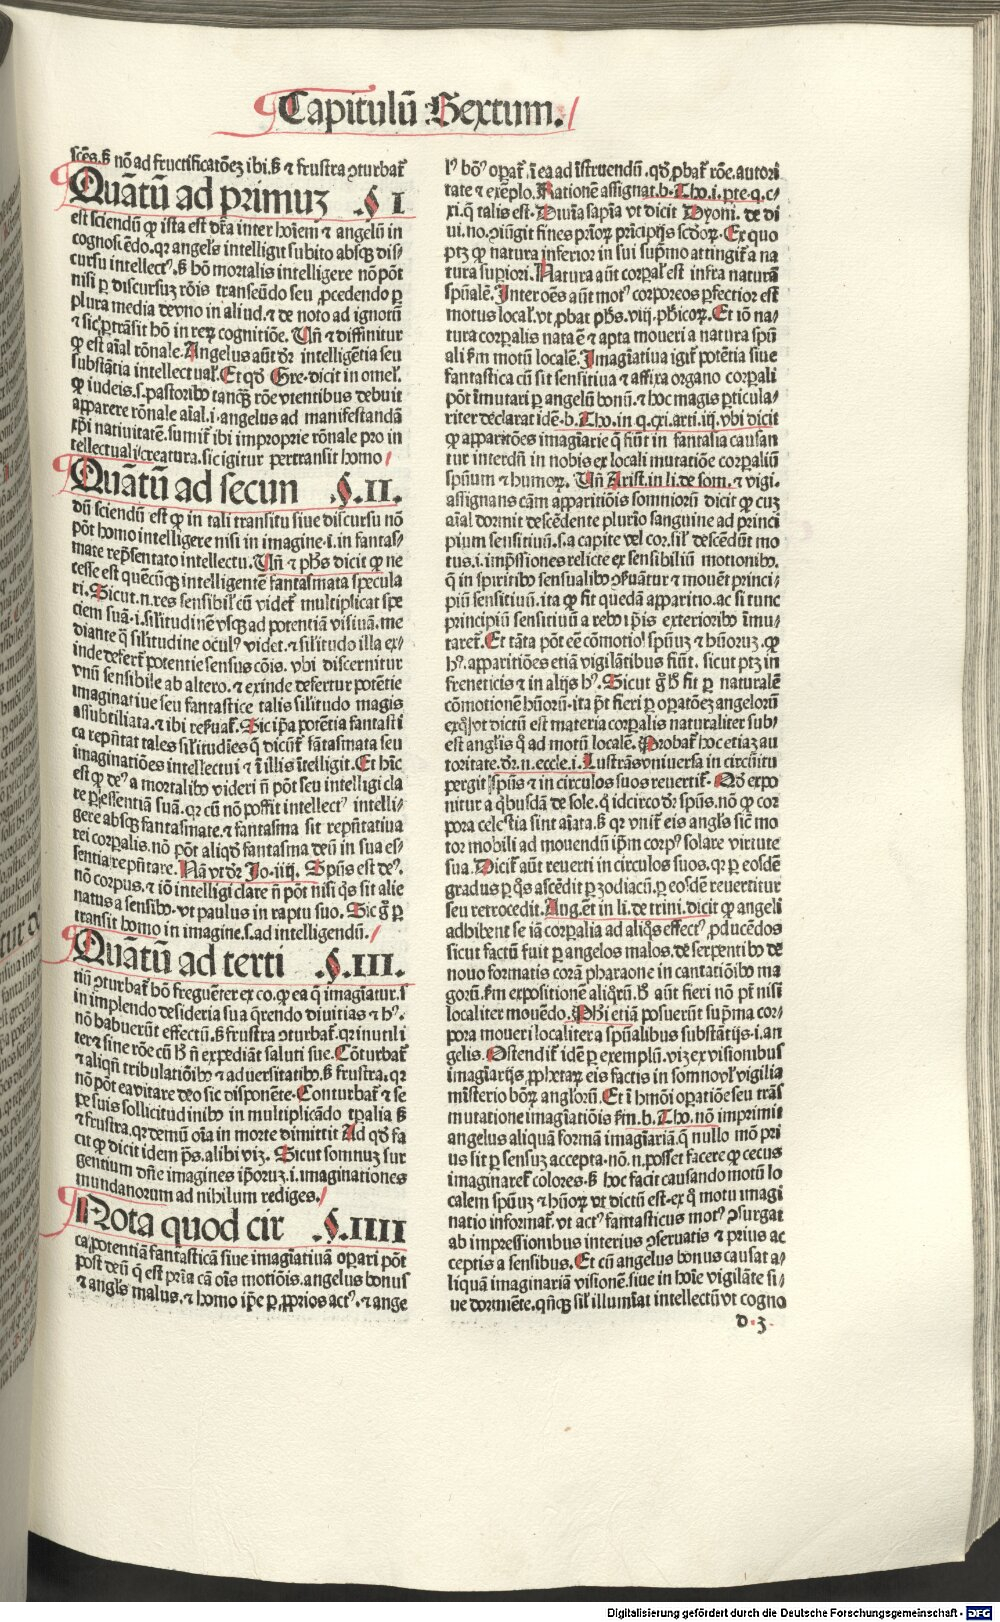 Capitulū Sextum.
scēs. ß nō ad fructificatōeꝫ ibi. ß ⁊ frustra ꝯturbat᷑
Quātū ad primuꝫ .§ I
est sciendū ꝙ ista est dr̄a inter hoīem ⁊ angelū in
cognoscēdo. qꝛ angelꝰ intelligit subito absqꝫ dis⸗
cursu intellectꝰ. ß hō mortalis intelligere nō pōt
nisi ꝑ discursuꝫ rōis transeūdo seu ꝓcedendo ꝑ
plura media de vno in aliud. ⁊ de noto ad ignotū
⁊ sic ꝑtrāsit hō in reꝝ cognitiōe. Vn̄ ⁊ diffinitur
ꝙ est aīal rōnale. Angelus aūt dr̄ intelligētia seu
substātia intellectual᷑. Et qd̄ Gre. dicit in omel᷑.
ꝙ iudeis .s. pastoribꝰ tanqꝫ rōe vtentibus debuit
apparere rōnale aīal .i. angelus ad manifestandā
xp̄i natiuitatē. sumit᷑ ibi improprie rōnale pro in
tellectuali creatura. sic igitur pertransit homo
Quātū ad secun .§.II.
dū sciendū est ꝙ in tali transitu siue discursu nō
pōt homo intelligere nisi in imagine .i. in fantas⸗
mate rep̄sentato intellectu. Vn̄ ⁊ ph̄s dicit ꝙ ne
cesse est quēcūqꝫ intelligentē fantasmata specula
ri. Sicut .n. res sensibil᷑ cū videt᷑ multiplicat spe
ciem suā .i. silitudinē vsqꝫ ad potentiā visiuā. me
diante q̄ silitudine oculꝰ videt. ⁊ silitudo illa ex⸗
inde defert᷑ potentie sensus cōis. vbi discernitur
vnū sensibile ab altero. ⁊ exinde defertur potētie
imaginatiue seu fantastice talis silitudo magis
assubtiliata. ⁊ ibi reẜuat᷑. Sic ip̄a potētia fantasti
ca rep̄ntat tales silitudīes q̄ dicūt᷑ fātasmata seu
imaginatiōes intellectui ⁊ ī illis ītelligit. Et hīc
est ꝙ deꝰ a mortalibꝰ videri n̄ pōt seu intelligi cla
re ꝑ essentiā suā. qꝛ cū nō possit intellectꝰ intelli⸗
gere absqꝫ fantasmate. ⁊ fantasma sit rep̄ntatiua
rei corꝑalis. nō pōt aliqd̄ fantasma deū in sua es⸗
sentia rep̄ntare. Nā vt dr̄ Jo. iiij. Spūs est deꝰ.
nō corpus. ⁊ iō intelligi clare n̄ pōt nisi q̄s sit alie
natus a sensibꝰ. vt paulus in raptu suo. Sic g̊ ꝑ
transit homo in imagine .s. ad intelligendū.
Quātū ad terti .§.III.
tiū ꝯturbat᷑ hō freguēter ex eo. ꝙ ea q̄ imagīatur. ī
in implendo desideria sua q̄rendo diuitias ⁊ hꝰ.
nō habuerūt effectū. ß frustra ꝯturbat᷑. qꝛ inutili
ter ⁊ sine rōe cū ß n̄ expediāt saluti sue. Cōturbat᷑
⁊ aliqn̄ tribulatiōibꝰ ⁊ aduersitatibꝰ. ß frustra. qꝛ
nō pōt ea vitare deo sic disponēte. Conturbat᷑ ⁊ se
pe suis sollicitudinibꝰ in multiplicādo tꝑalia ß
⁊ frustra. qꝛ demū oīa in morte dimittit Ad qd̄ fa
cit ꝙ dicit idem p̄s. alibi viꝫ. Sicut somnuꝫ sur
gentium dn̄e imagines ip̄oruꝫ .i. imaginationes
mundanorum ad nihilum rediges.
Nota quod cir .§.IIII
ca potentiā fantasticā siue imagīatiuā opari pōt
post deū q̄ est prīa cā oīs motiōis. angelus bonus
⁊ anglꝰ malus. ⁊ homo ip̄e ꝑ ꝓprios actꝰ. ⁊ ange
lꝰ bōꝰ opat᷑. ī ea ad īstruendū. qd̄ ꝓbat᷑ rōe. autori
tate ⁊ exēplo. Rationē assignat .b. Tho. i. pte. q. c⸗
xi. q̄ talis est. Diuīa sapīa vt dicit Dyoni. de di
ui. no. ꝯiūgit fines prioꝝ prīcipijs scd̄oꝝ. Ex quo
ptꝫ ꝙ natura inferior in sui sup̄mo attingit᷑ a na
tura superiori. Natura aūt corꝑal᷑ est infra naturā
spūalē. Inter oēs aūt motꝰ corporeos ꝑfectior est
motus local᷑. vt ꝓbat ph̄s. viij. ph̄icoꝝ. Et iō na⸗
tura corꝑalis nata ē ⁊ apta moueri a natura spū
ali ẜm motū localē. Imagīatiua igit᷑ potētia siue
fantastica cū sit sensitiua ⁊ affixa organo corꝑali
pōt īmutari ꝑ angelū bonū. ⁊ hoc magis ꝑticula⸗
riter declarat idē .b. Tho. in q. cxi. arti. iij. vbi dicit
ꝙ apparitōes imagīarie q̄ fiūt in fantasia causan
tur interdū in nobis ex locali mutatiōe corꝑaliū
spūum ⁊ humoꝝ. Vn̄ Arist. in li. de som. ⁊ vigi.
assignans cām apparitiōis somniorū dicit ꝙ cuꝫ
aīal dormit descēdente plurīo sanguine ad princi
pium sensitiuū .s. a capite vel cor. sil᷑ descēdūt mo
tus .i. imp̄ssiones relicte ex sensibiliū motionibꝰ.
q̄ in spiritibꝰ sensualibꝰ ꝯẜuātur ⁊ mouēt princi⸗
piū sensitiuū. ita ꝙ fit quedā apparitio. ac si tunc
principiū sensitiuū a rebꝰ ip̄is exterioribꝰ īmu⸗
taret᷑. Et tāta pōt eē cōmotio spūuꝫ ⁊ hūoruꝫ. ꝙ
hꝰ. apparitiōes etiā vigilātibus fiūt. sicut ptꝫ in
freneticis ⁊ in alijs hꝰ. Sicut g̊ ß fit ꝑ naturalē
cōmotionē hūorū. ita pt̄ fieri ꝑ opatōeꝫ angelorū
ex q̊ vt dictū est materia corꝑalis naturaliter sub⸗
est anglis q̊ ad motū localē. Probat᷑ hoc etiaꝫ au
toritate. dr̄ .n. eccle. i. Lustrās vniuersa in circūitu
pergit spūs ⁊ in circulos suos reuertit᷑. Qd̄ expo
nitur a qbusdā de sole. q̄ idcirco dr̄ spūs. nō ꝙ cor
pora celestia sint aīata. ß qꝛ vnit᷑ eis anglꝰ sicut mo
tor mobili ad mouendū ip̄m corpꝰ solare virtute
sua. Dicit᷑ aūt reuerti in circulos suos. qꝛ ꝑ eosdē
gradus ꝑ q̄s ascēdit ꝑ zodiacū. ꝑ eosdē reuertitur
seu retrocedit. Aug. et̄ in li. de trini. dicit ꝙ angeli
adhibent se iā corꝑalia ad aliq̄s effectꝰ ꝓducēdos
sicut factū fuit ꝑ angelos malos. de serpentibꝰ de
nouo formatis corā pharaone in cantatiōibꝰ ma
gorū. ẜm expositionē aliq̊rū. ß aūt fieri nō pt̄ nisi
localiter mouēdo. Ph̄i etiā posuerūt sup̄ma cor⸗
pora moueri localiter a spūalibus substātijs .i. an
gelis. Ostendit᷑ idē ꝑ exemplū. viꝫ ex visionibus
imagīarijs ꝓphetaꝝ eis factis in somno vl᷑ vigilia
misterio bōꝝ anglorū. Et ī hmōi opatiōe seu trās
mutatione imagīatiōis ẜm .b. Tho. nō imprimit
angelus aliquā formā imagīariā. q̄ nullo mō pri
us sit ꝑ sensuꝫ accepta. nō .n. posset facere ꝙ cecus
imaginaret᷑ colores. ß hoc facit causando motū lo
calem spūuꝫ ⁊ hūoꝝ vt dictū est. ex q̊ motu imagi
natio informat᷑. vt actꝰ fantasticus motꝰ ꝯsurgat
ab impressionibus interius ꝯseruatis ⁊ prius ac
ceptis a sensibus. Et cū angelus bonus causat a⸗
liquā imaginariā visionē. siue in hoīe vigilāte si⸗
ue dormiēte. qn̄qꝫ sil᷑ illumīat intellectū vt cogno
d.3.
Digitalisierung gefördert durch die Deutsche Forschungsgemeinschaft - DFG